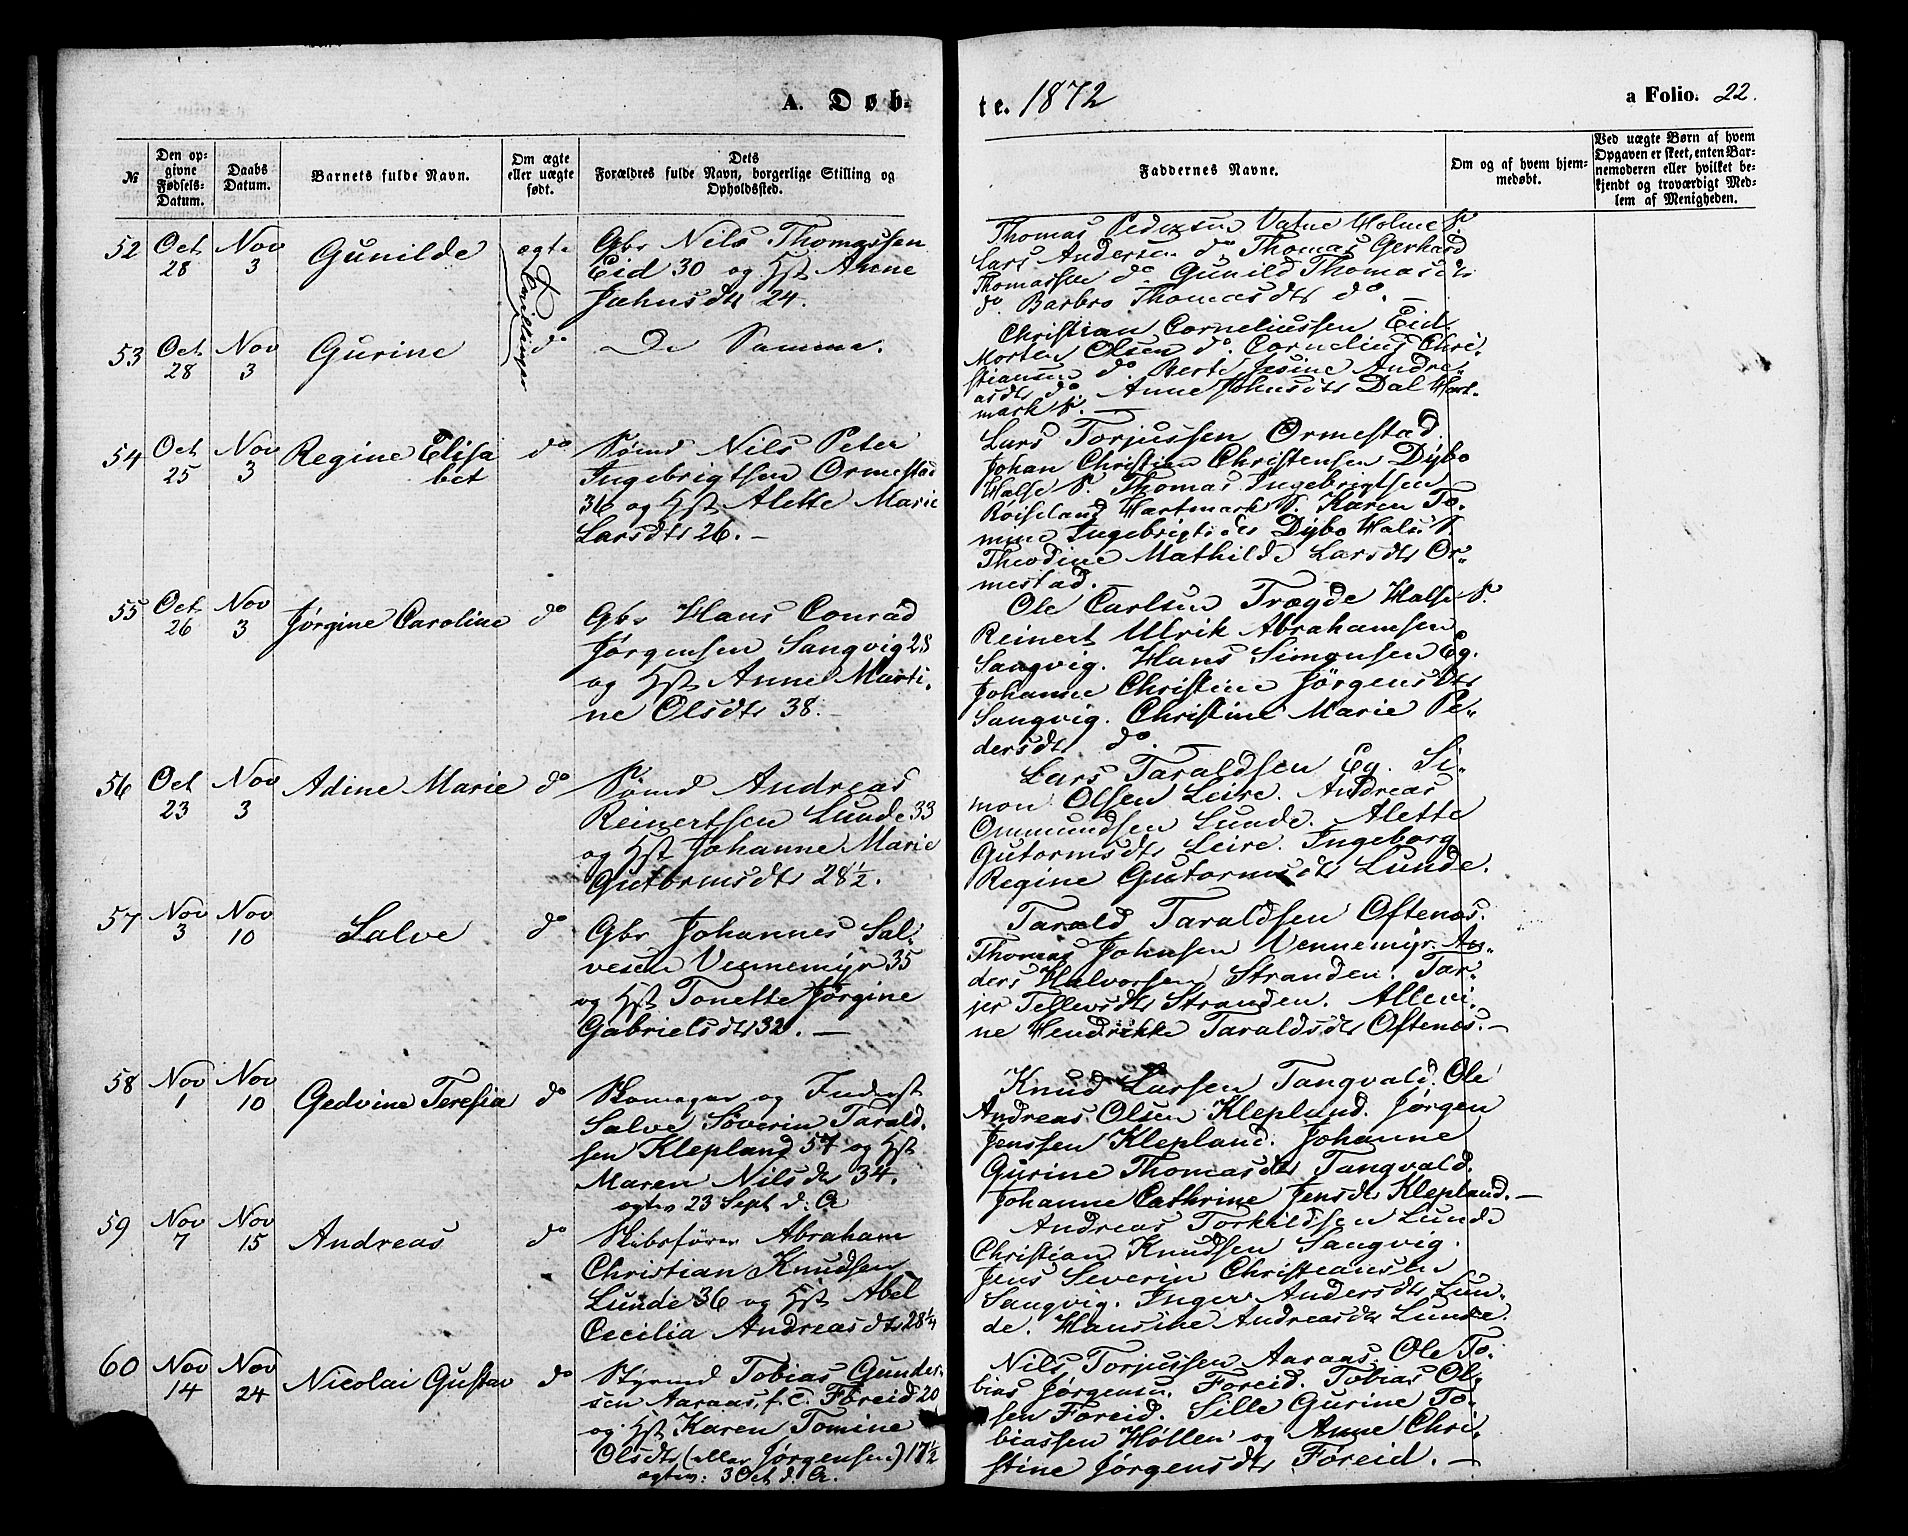 A. Døb-
te. 1872
a Folio. 22.
№
Den op-
givne
Fødsels-
Datum.
Daabs
Datum.
Barnets fulde Navn.
Om ægte
eller uægte
født.
Dets
Forældres fulde Navn, borgerlige Stilling og
Opholdssted.
Faddernes Navne.
Om og af hvem hjem-
medøbt.
Ved uægte Børn af hvem
Opgaven er skeet, enten Bar-
nemoderen eller hvilket be-
kjendt og troværdigt Med-
lem af Menigheden.
52
Oct
28
Nov
3
Gunilde
ægte
Tvillinger
Gbr Nils Thomassen
Eid 30 og Hst Anne
Jahnsdtr 24.
Thomas Pedersen Vatne Holme S.
Lars Andersen do. Thomas Gerhard
Thomassen do. Gunild Thomasdtr
do. Barbro Thomasdtr do. —
53
Oct
28
Nov
3
Gurine
do
De Samme.
Christian Corneliussen Eid.
Morten Olsen do. Cornelius Chri-
stiansen do. Berte Jesine Andre-
asdtr do. Anne Johnsdtr Dal Hart-
mark S. —
54
Oct
25
Nov
3
Regine Elisa
bet
do
Sømd Nils Peter
Ingebrigtsen Ormestad
36 og Hst Alette Marie
Larsdtr 26. —
Lars Torjussen Ormestad.
Johan Christian Christensen Dybo
Halse S. Thomas Ingebrigtsen
Røiseland Hartmark S. Karen To-
mine Ingebrigtsdtr Dybo Halse S.
Theodine Mathilde Larsdtr Or-
mestad.
55
Oct
26
Nov
3
Jørgine Caroline
do
Gbr Hans Conrad
Jørgensen Sangvig 28
og Hst Anne Marti-
ne Olsdtr 38. —
Ole Carlsen Trægde Halse S.
Reinert Ulrik Abrahamsen
Sangvig. Hans Simonsen Eg.
Johanne Christine Jørgensdtr
Sangvig. Christine Marie Pe-
dersdtr do. —
56
Oct
23
Nov
3
Adine Marie
do
Sømd Andreas
Reinertsen Lunde 33
og Hst Johanne Marie
Gutormsdtr 28½.
Lars Taraldsen Eg. Si-
mon Olsen Leire. Andreas
Ommundsen Lunde. Alette
Gutormsdtr Leire. Ingeborg
Regine Gutormsdtr Lunde.
57
Nov
3
Nov
10
Salve
do
Gbr Johannes Sal-
vesen Vennemyr 35
og Hst Tonette Jørgine
Gabrielsdtr 32. —
Tarald Taraldsen Oftenæs.
Thomas Johnsen Vennemyr. An-
ders Halvorsen Stranden. Tar-
jer Tellevsdtr Stranden. Allevi-
ne Hendrikke Taraldsdtr Oftenæs. —
58
Nov
1
Nov
10
Gedvine Teresia
do
Skomager og Inderst
Salve Søverin Tarald-
sen Klepland 57 og Hst
Maren Nilsdtr 34.
egtev 23 Sept d. A
Knud Larsen Tangvald. Ole
Andreas Olsen Klepland. Jørgen
Jenssen Klepland. Johanne
Gurine Thomasdtr Tangvald.
Johanne Cathrine Jensdtr Klepland. —
59
Nov
7
Nov
15
Andreas
do
Skibsfører Abraham
Christian Knudsen
Lunde 36 og Hst Abel
Cecilia Andreasdtr 28¼
Andreas Torkildsen Lunde
Christian Knudsen Sangvig.
Jens Severin Christiansen
Sangvig. Inger Andersdtr Lun-
de. Hansine Andreasdtr Lunde.
60
Nov
14
Nov
24
Nicolai Gustav
do
Styrmd Tobias Gunder-
sen Aaraas, f.c. Føreid 20
og Hst Karen Tomine
Olsdtr (eller Jørgensen) 17½
egtev: 3 Oct d. A.
Nils Torjussen Aaraas. Ole To-
bias Jørgensen Føreid. Tobias Ol-
sen Føreid. Sille Gurine To-
biassen Høllen og Anne Chri-
stine Jørgensdtr Føreid. —